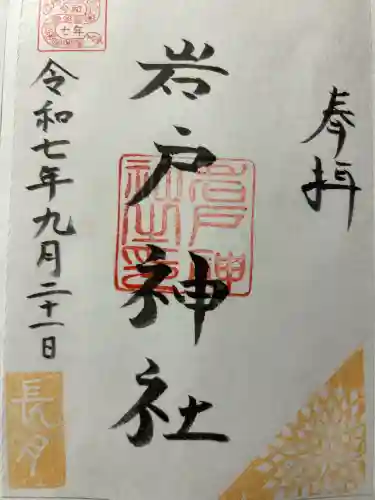 奉拝
岩戸神社
岩戸神社之印
令和七年九月二十一日
令和七年
長月